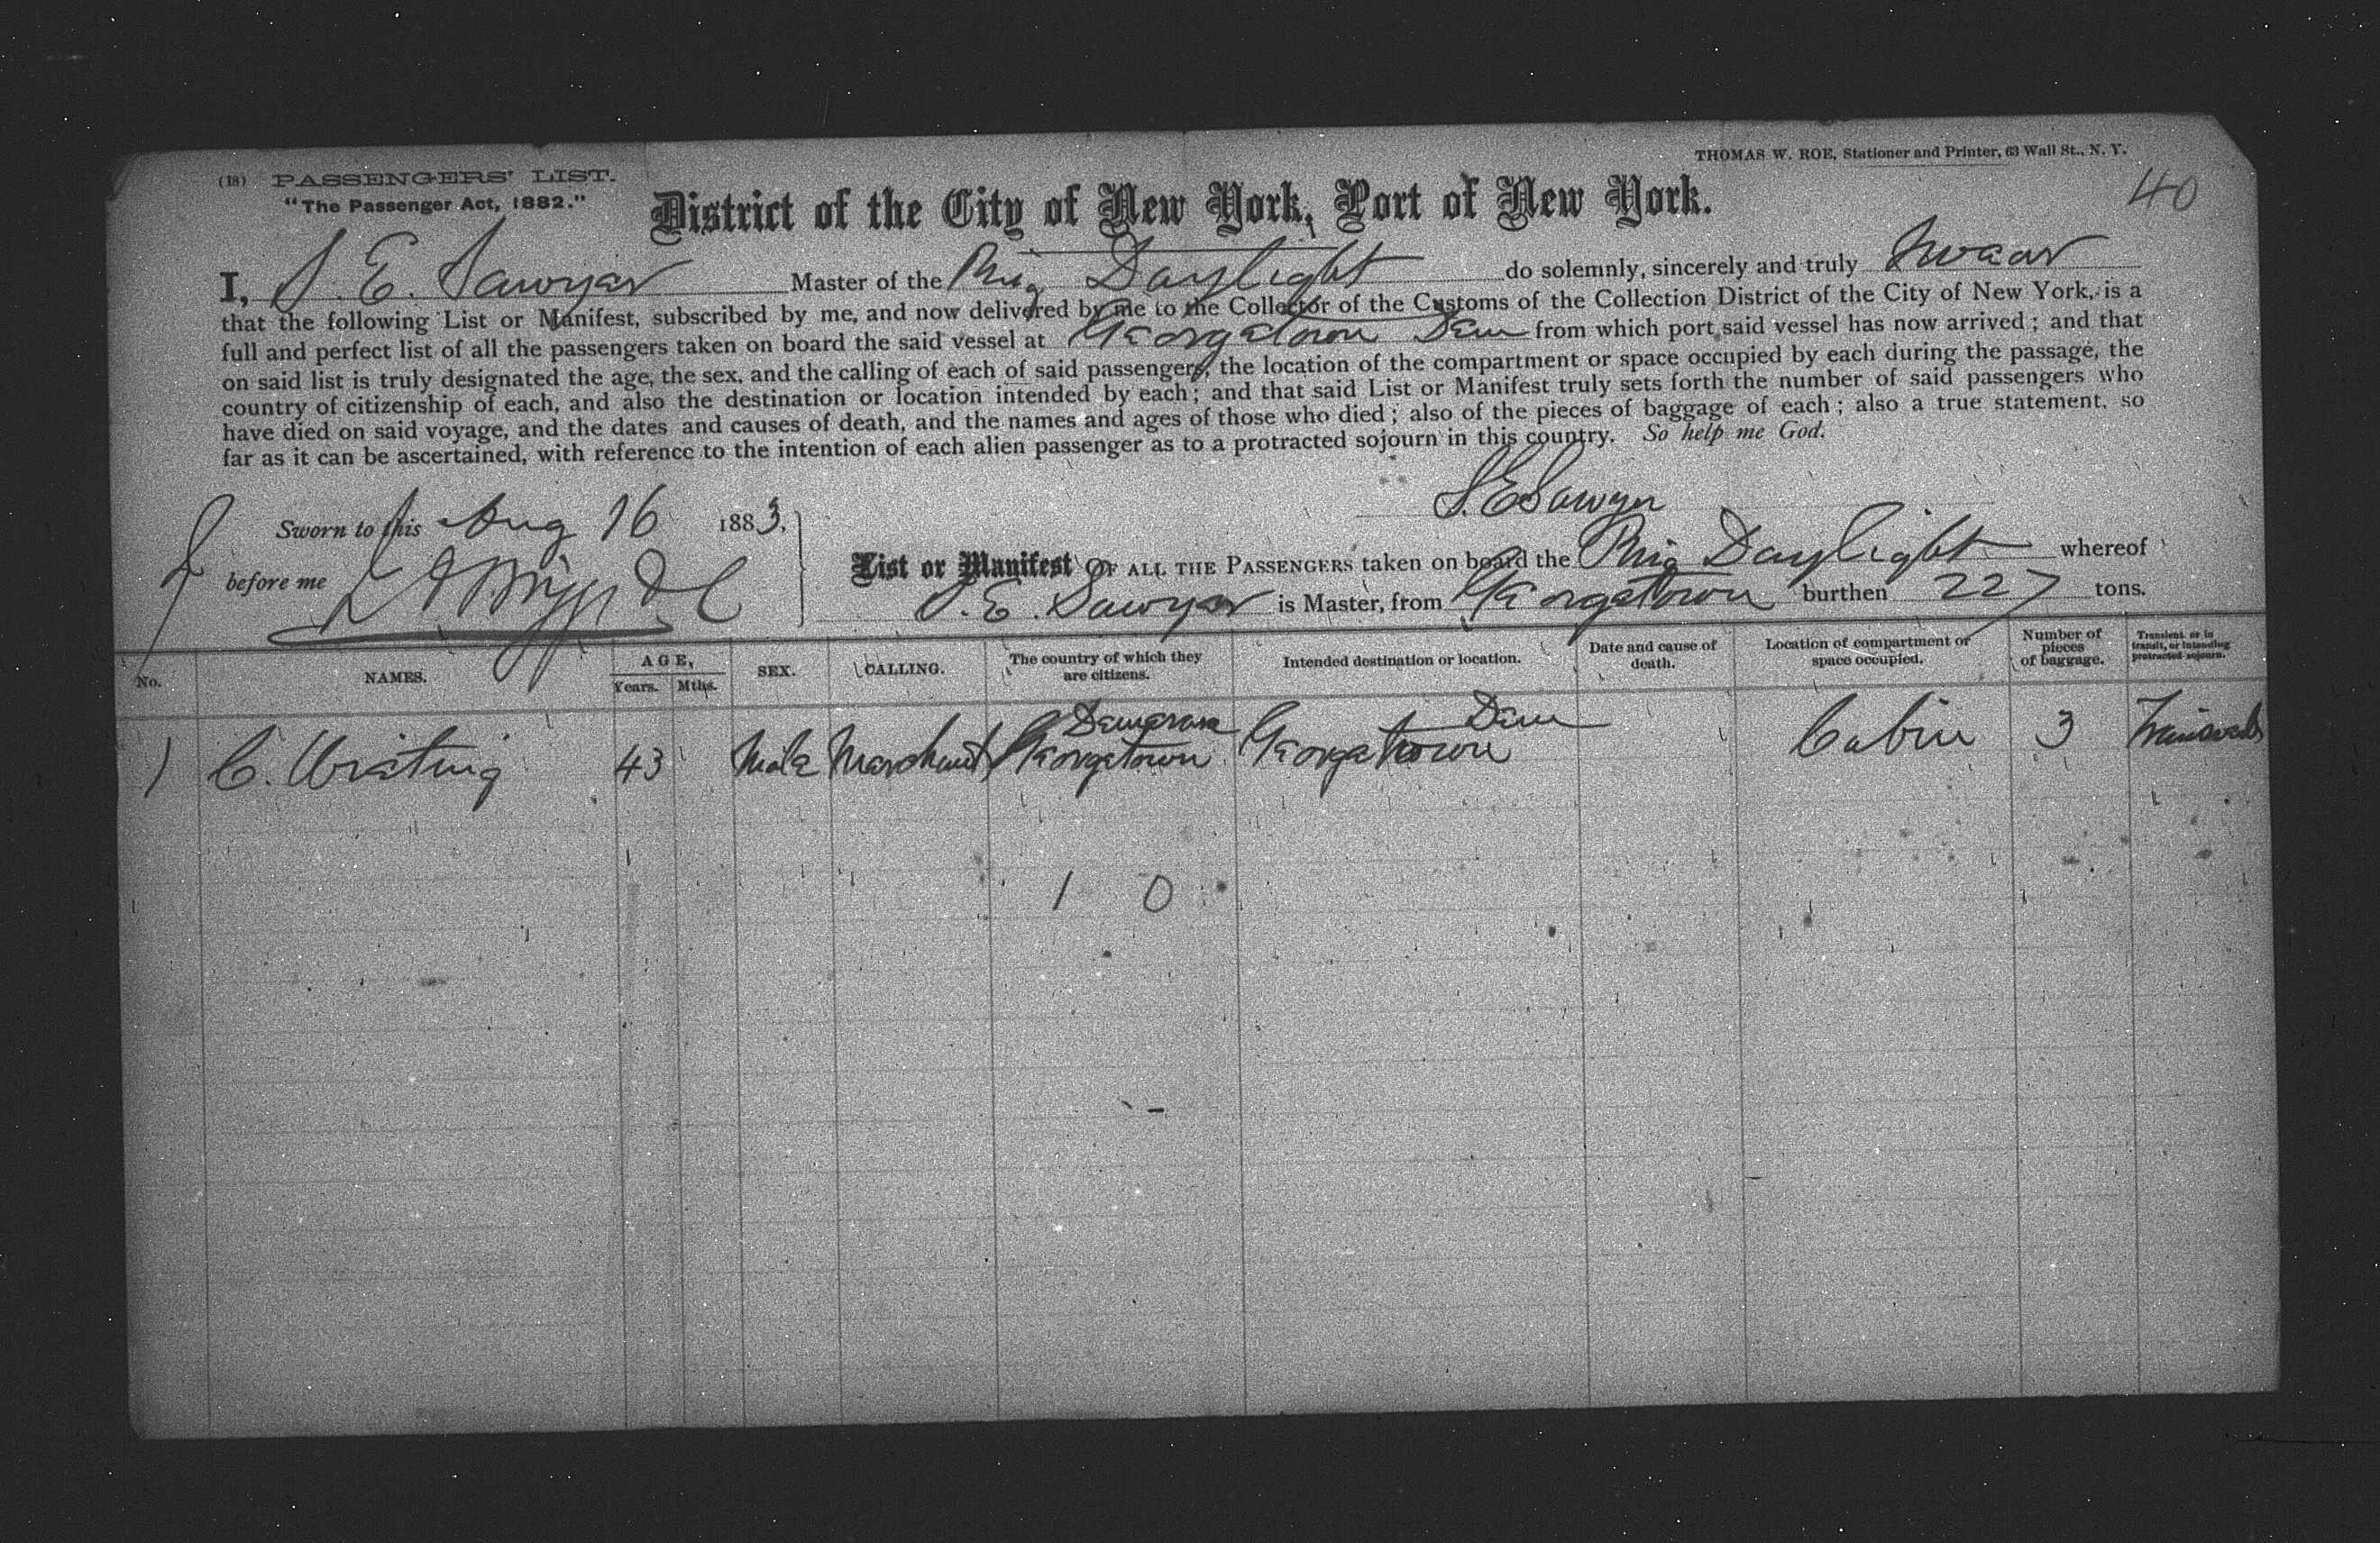 THOMAS W. ROE, Stationer and Printer, 63 Wall St., N. Y.
(18) PASSENGERS' LIST.
"The Passenger Act, 1882."
District of the City of New York, Port of New York.
40
I, S. E. Sawyer Master of the Brig Daylight do solemnly, sincerely and truly Swear
that the following List or Manifest, subscribed by me, and now delivered by me to the Collector of the Customs of the Collection District of the City of New York, is a
full and perfect list of all the passengers taken on board the said vessel at Georgetown Dem from which port said vessel has now arrived; and that
on said list is truly designated the age, the sex, and the calling of each of said passengers, the location of the compartment or space occupied by each during the passage, the
country of citizenship of each, and also the destination or location intended by each; and that said List or Manifest truly sets forth the number of said passengers who
have died on said voyage, and the dates and causes of death, and the names and ages of those who died; also of the pieces of baggage of each; also a true statement, so
far as it can be ascertained, with reference to the intention of each alien passenger as to a protracted sojourn in this country. So help me God.
S. E Sawyer
Sworn to this Aug 16 1883.
before me
List or Manifest OF ALL THE PASSENGERS taken on board the Brig Daylight whereof
S. E. Sawyer is Master, from Georgetown burthen 227 tons.
No. NAMES. AGE, Years. Mths. SEX. CALLING. The country of which they are citizens. Intended destination or location. Date and cause of death. Location of compartment or space occupied. Number of pieces of baggage. Transient, or in transit, or intending protracted sojourn.
Demerara Dem
1 C. 43 Male Merchant Georgetown Georgetown Cabin 3
1 0